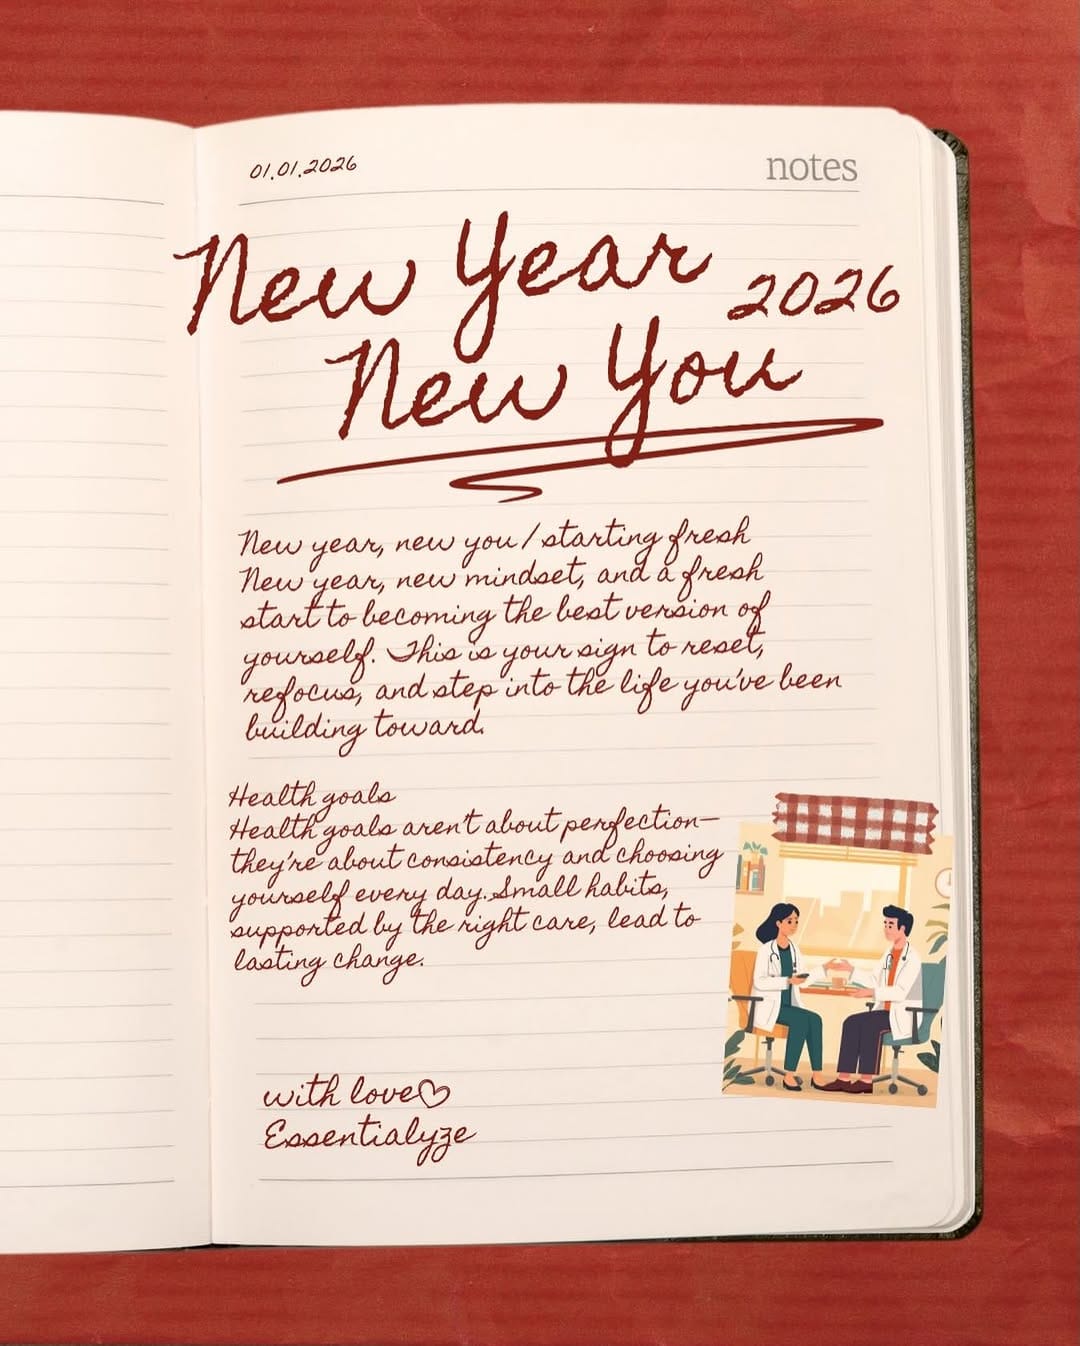 01.01.2026
notes
New Year
2026
New You
New year, new you / starting fresh
New year, new mindset, and a fresh
start to becoming the best version of
yourself. This is your sign to reset,
refocus, and step into the life you've been
building toward.
Health goals
Health goals aren't about perfection—
they're about consistency and choosing
yourself every day. Small habits,
supported by the right care, lead to
lasting change.
with love♡
Essentialyze